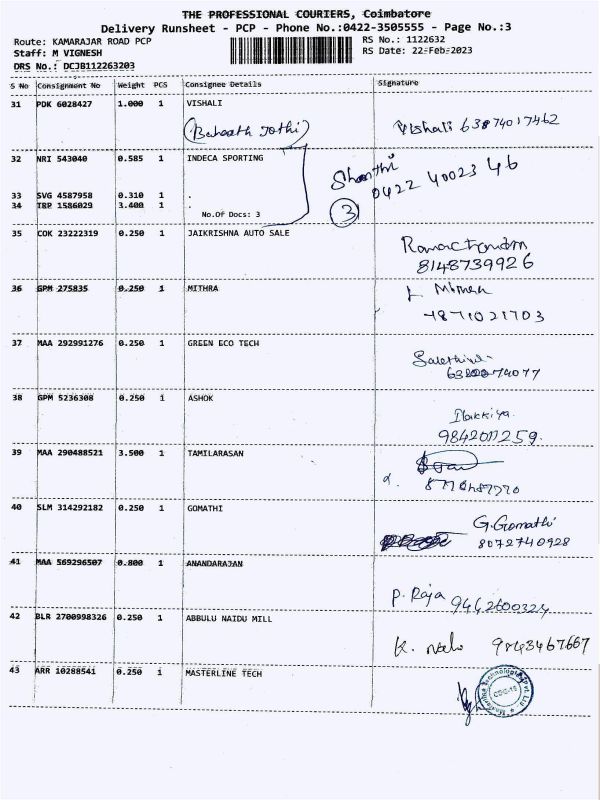 THE PROFESSIONAL COURIERS, Coimbatore
Delivery Runsheet - PCP - Phone No.:0422-3505555 - Page No.:3
Route: KAMARAJAR ROAD PCP
RS No.: 1122632
Staff: M VIGNESH
RS Date: 22-Feb-2023
DRS No.: DCJB112263203
S No Consignment No Weight PCS Consignee Details Signature
31 PDK 6028427 1.000 1 VISHALI
(Baharath Jothi) Vishali 63874017462
32 NRI 543040 0.585 1 INDECA SPORTING
Shanthi
0422 40023 46
33 SVG 4587958 0.310 1 .
34 TRP 1586029 3.400 1 .
No.Of Docs: 3
3
35 COK 23222319 0.250 1 JAIKRISHNA AUTO SALE
Ramachandran
8148739926
36 GPM 275835 0.250 1 MITHRA
37 MAA 292991276 0.250 1 GREEN ECO TECH
38 GPM 5236308 0.250 1 ASHOK
Ilakkiya.
9842011259.
39 MAA 290488521 3.500 1 TAMILARASAN
40 SLM 314292182 0.250 1 GOMATHI
G.Gomathi
8072740928
41 MAA 569296507 0.800 1 ANANDARAJAN
P. Raja 9442600324
42 BLR 2700998326 0.250 1 ABBULU NAIDU MILL
K. 9843467667
43 ARR 10288541 0.250 1 MASTERLINE TECH